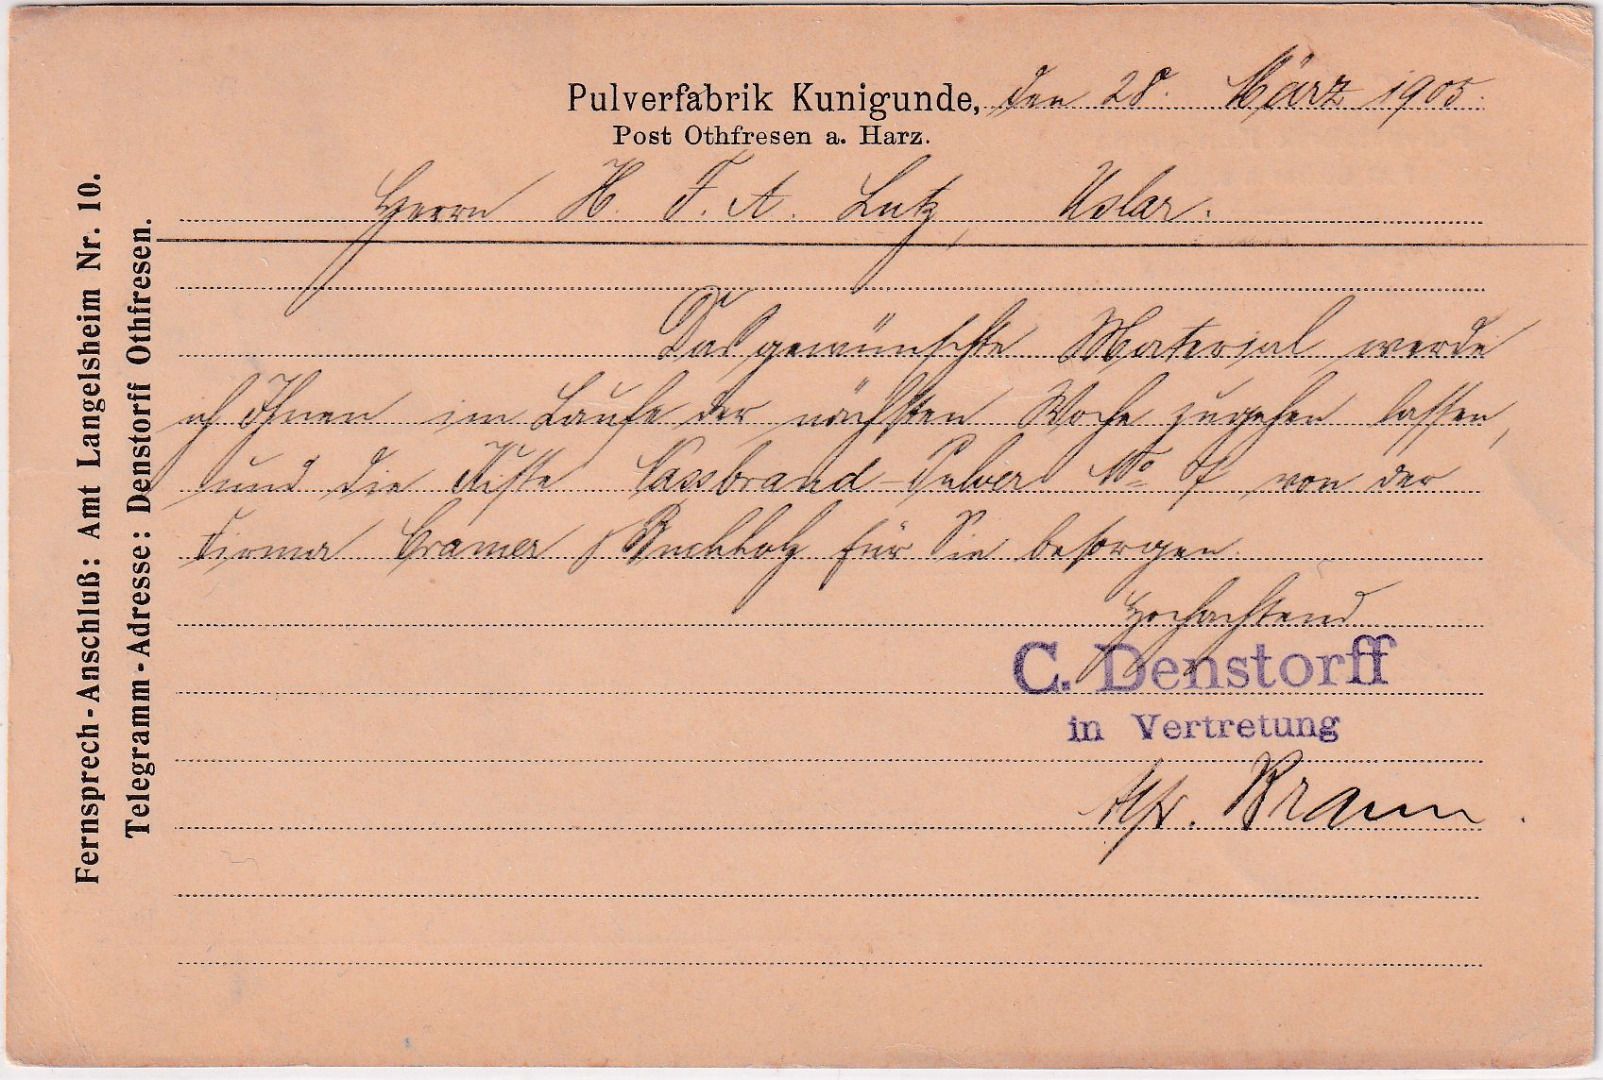 Pulverfabrik Kunigunde, den 28. März 1905.
Post Othfresen a. Harz.
Fernsprech-Anschluß: Amt Langelsheim Nr. 10.
Telegramm-Adresse: Denstorff Othfresen.
Herrn H. F. A. Lutz, Uslar.
Das gewünschte Material werde
ich Ihnen im Laufe der nächsten Woche zugehen lassen,
und die Kiste Nassbrand-Pulver No. 7 von der
Firma Cramer & Buchholz für Sie besorgen.
Hochachtend
C. Denstorff
in Vertretung
Braun.